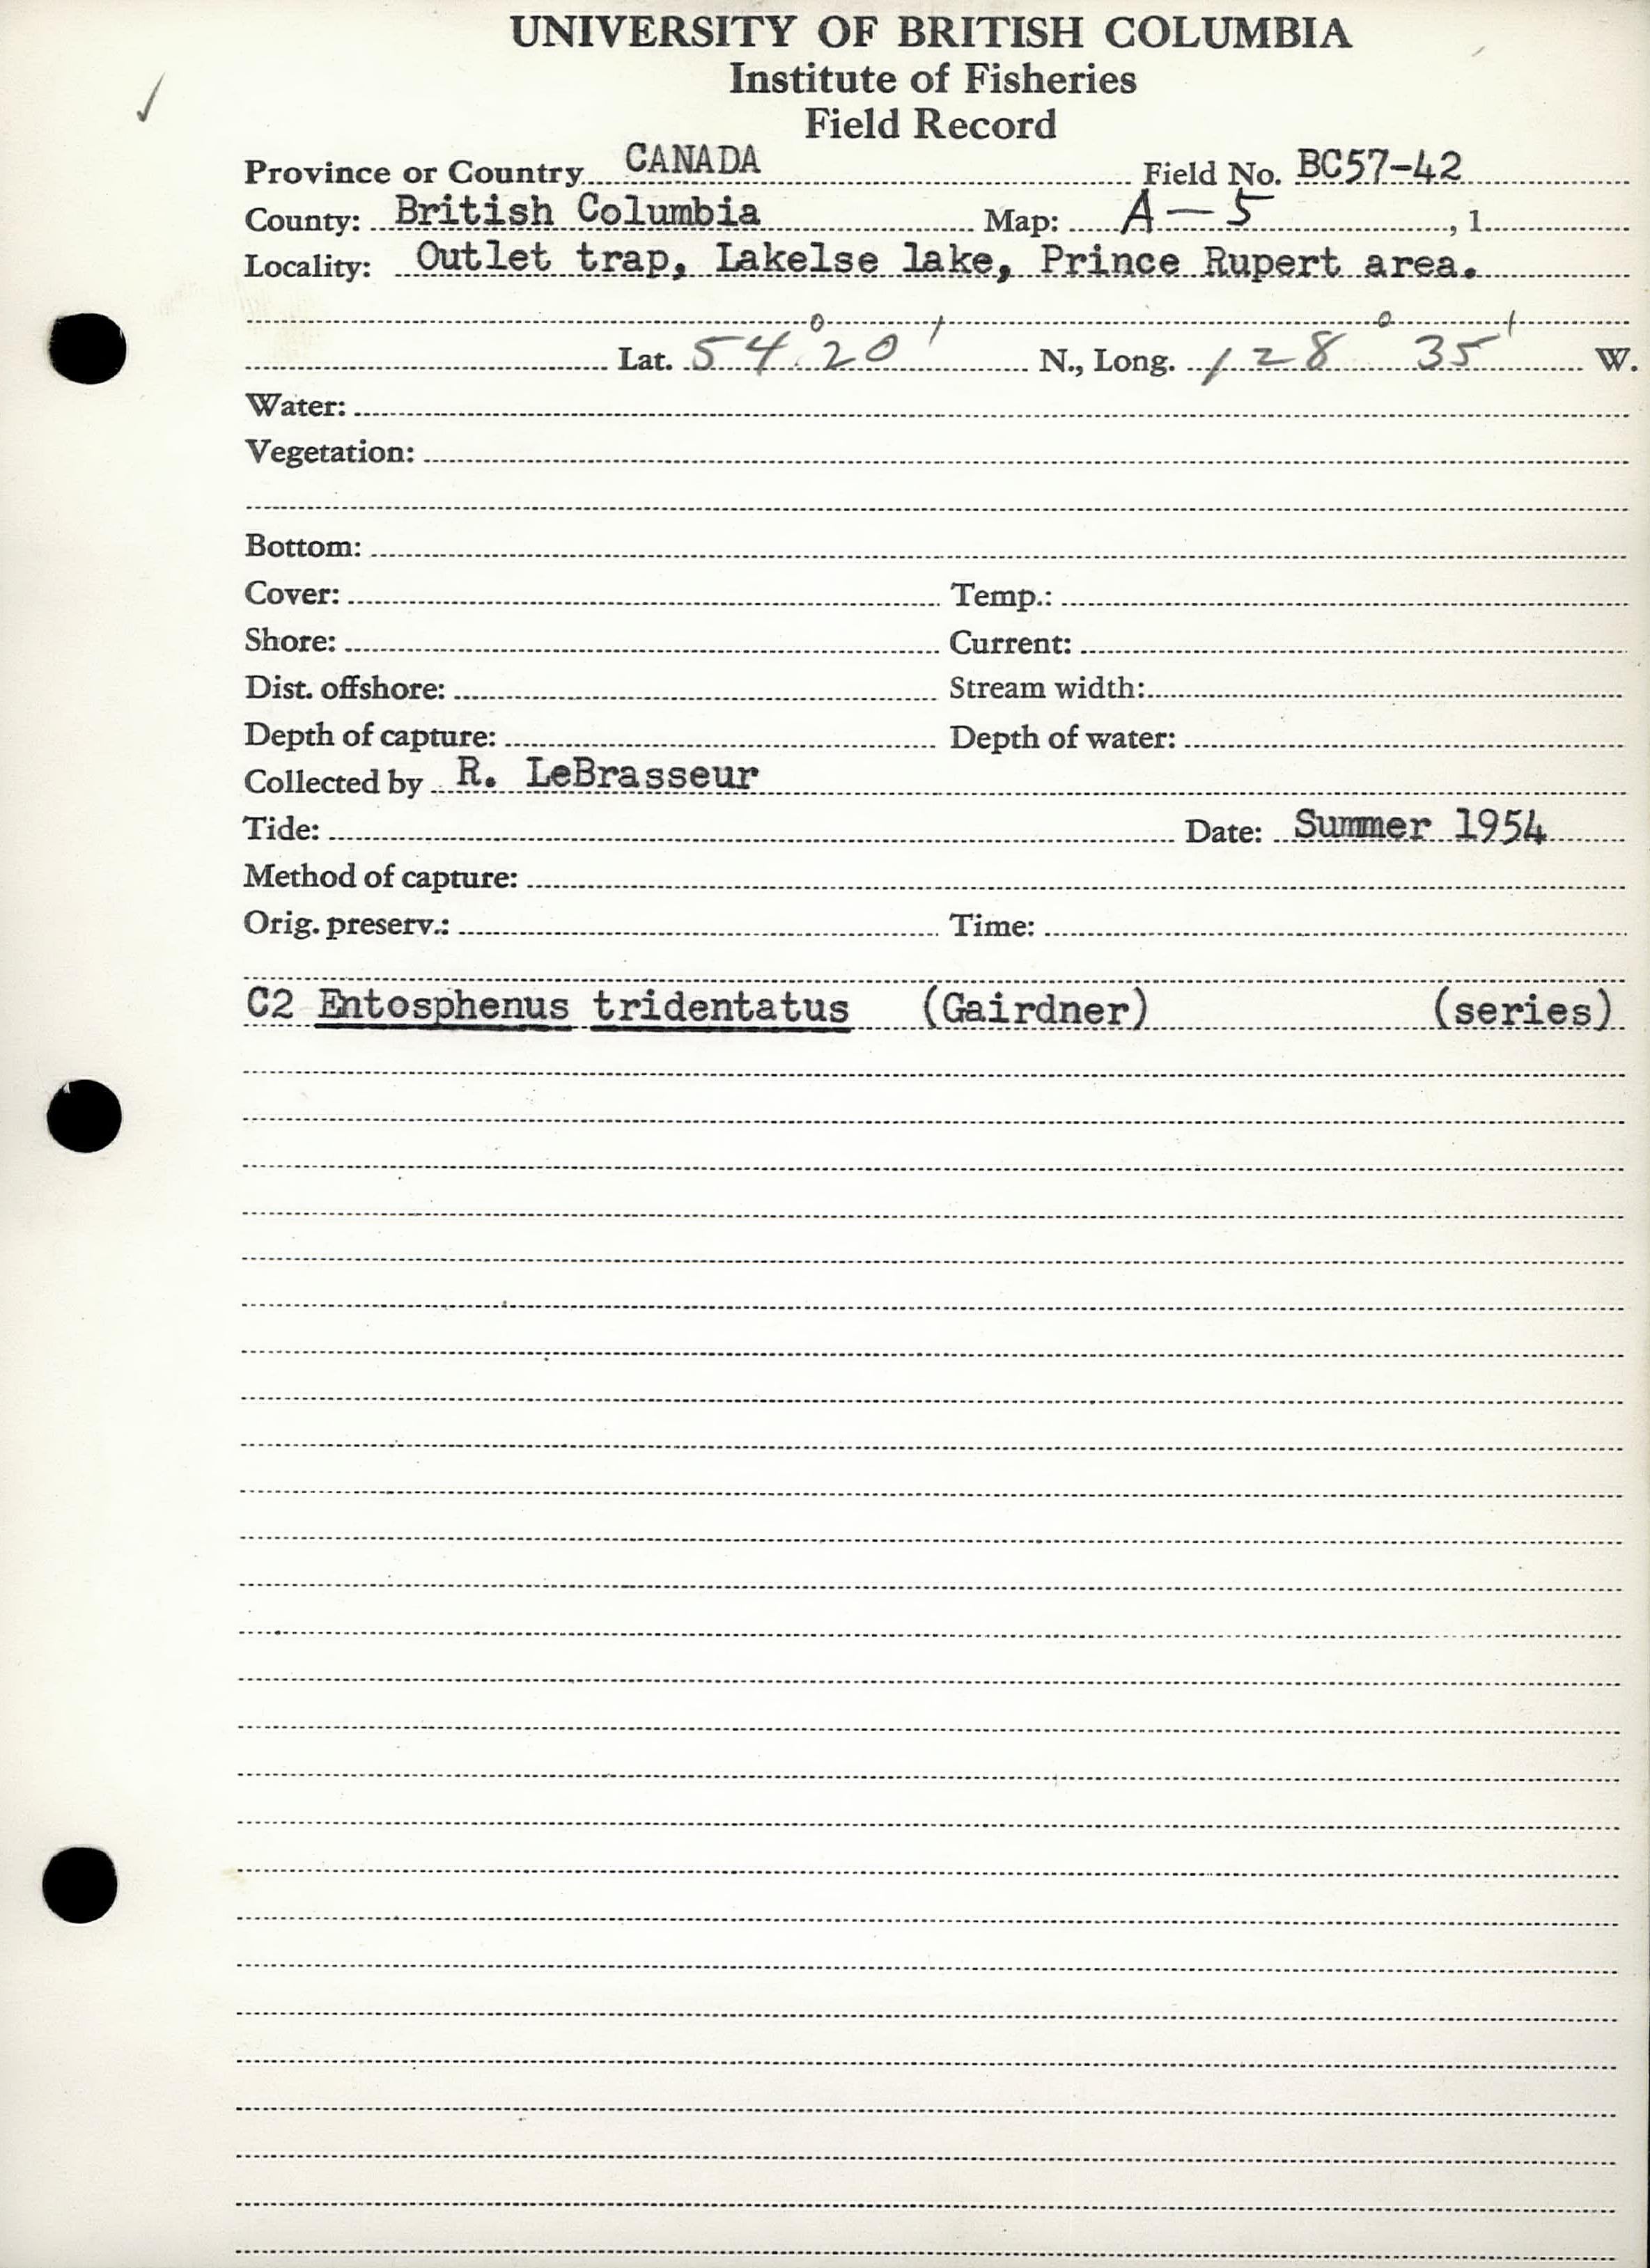 UNIVERSITY OF BRITISH COLUMBIA
Institute of Fisheries
Field Record
Province or Country CANADA Field No. BC57-42
County: British Columbia Map: A-5, 1.
Locality: Outlet trap, Lakelse lake, Prince Rupert area.
Lat. 54°20' N., Long. 128° 35' W.
Water:
Vegetation:
Bottom:
Cover: Temp.:
Shore: Current:
Dist. offshore: Stream width:
Depth of capture: Depth of water:
Collected by R. LeBrasseur
Tide: Date: Summer 1954
Method of capture:
Orig. preserv.: Time:
C2 Entosphenus tridentatus (Gairdner) (series)